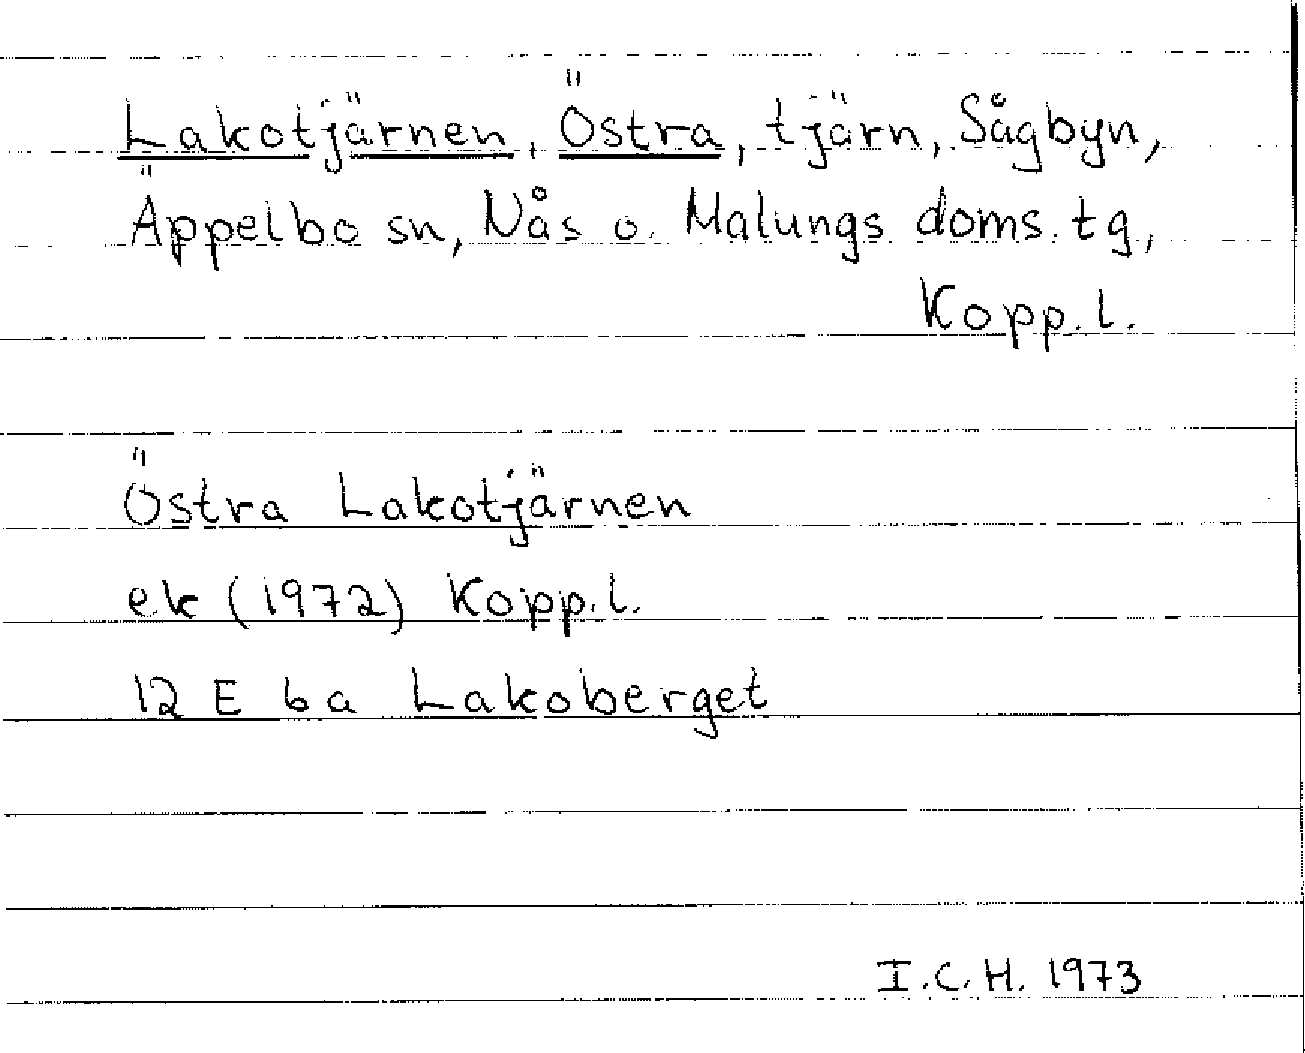 Lakotjärnen, Östra, tjärn, Sågbyn,
Äppelbo sn, Nås o. Malungs doms. tg,
Kopp. l.
Östra Lakotjärnen
ek (1972) Kopp. l.
12 E 6 a Lakoberget
I. C. H. 1973